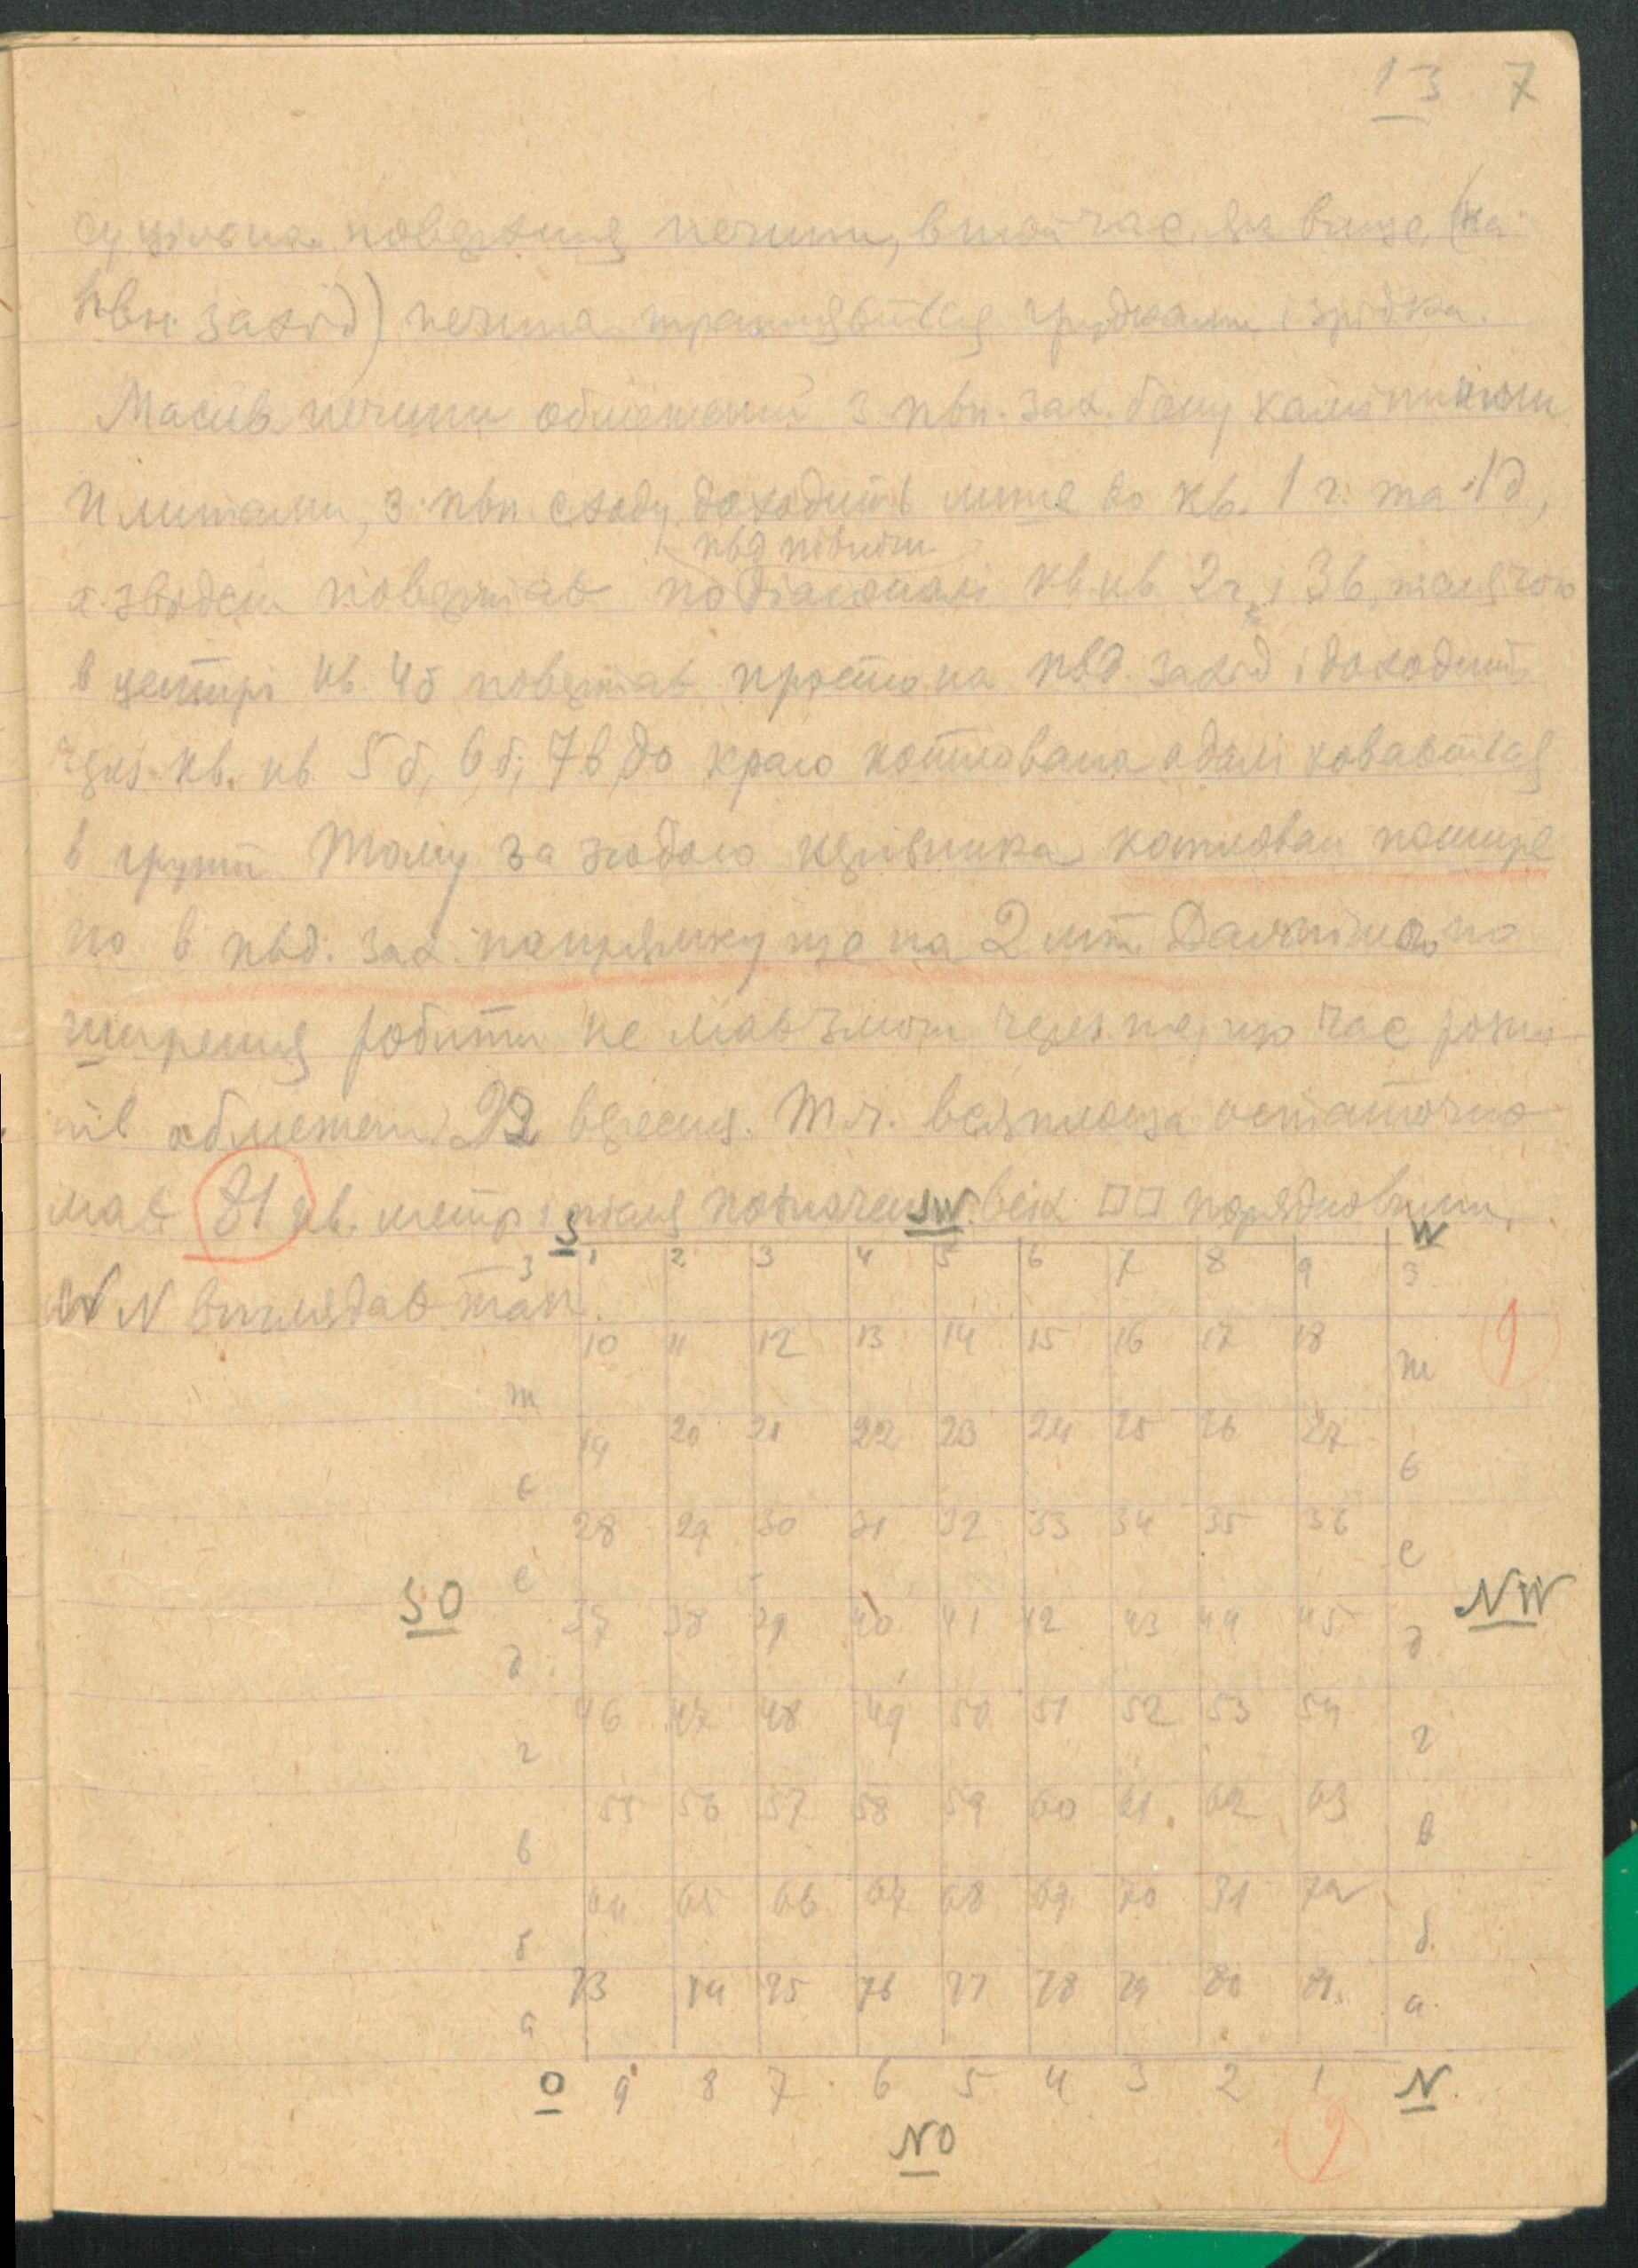 13 7
суцільна поверхня печини, в той час, як вище (на
пвн. захід) печина трапляється грудками і зрідка.
Масив печини обмежений з пвн. зах. боку камінними
плитами, з пвн. сходу доходить лише до кв. 1 г. та 1д,
пвд
а звідси повертає по діагоналі кв. кв. 2г, і 3в, після чого
в центрі кв. 4б повертає просто на пвд. захід і доходить
через кв. кв. 5б, 6б, 7в, до краю котлована, а далі ховається
в грунті. Тому за згодою керівника котлован пошире
но в пвд. зах. напрямку ще на 2 мт. Дальшого по
ширення робити не має змоги через те, що час розко
пів обмежени 22 вересня. Т. ч. вся площа остаточно
має 81 кв. метр і після позначення всіх □□ порядковими
S SW W
N N виглядає так.
з 1 2 3 4 5 6 7 8 9 з
ж 10 11 12 13 14 15 16 17 18 ж
9
є 19 20 21 22 23 24 25 26 27 є
е 28 29 30 31 32 33 34 35 36 е
SO NW
д 37 38 39 40 41 42 43 44 45 д
г 46 47 48 49 50 51 52 53 54 г
в 55 56 57 58 59 60 61 62 63 в
б 64 65 66 67 68 69 70 71 72 б
а 73 74 75 76 77 78 79 80 81 а
O 9 8 7 6 5 4 3 2 1 N
NO 9